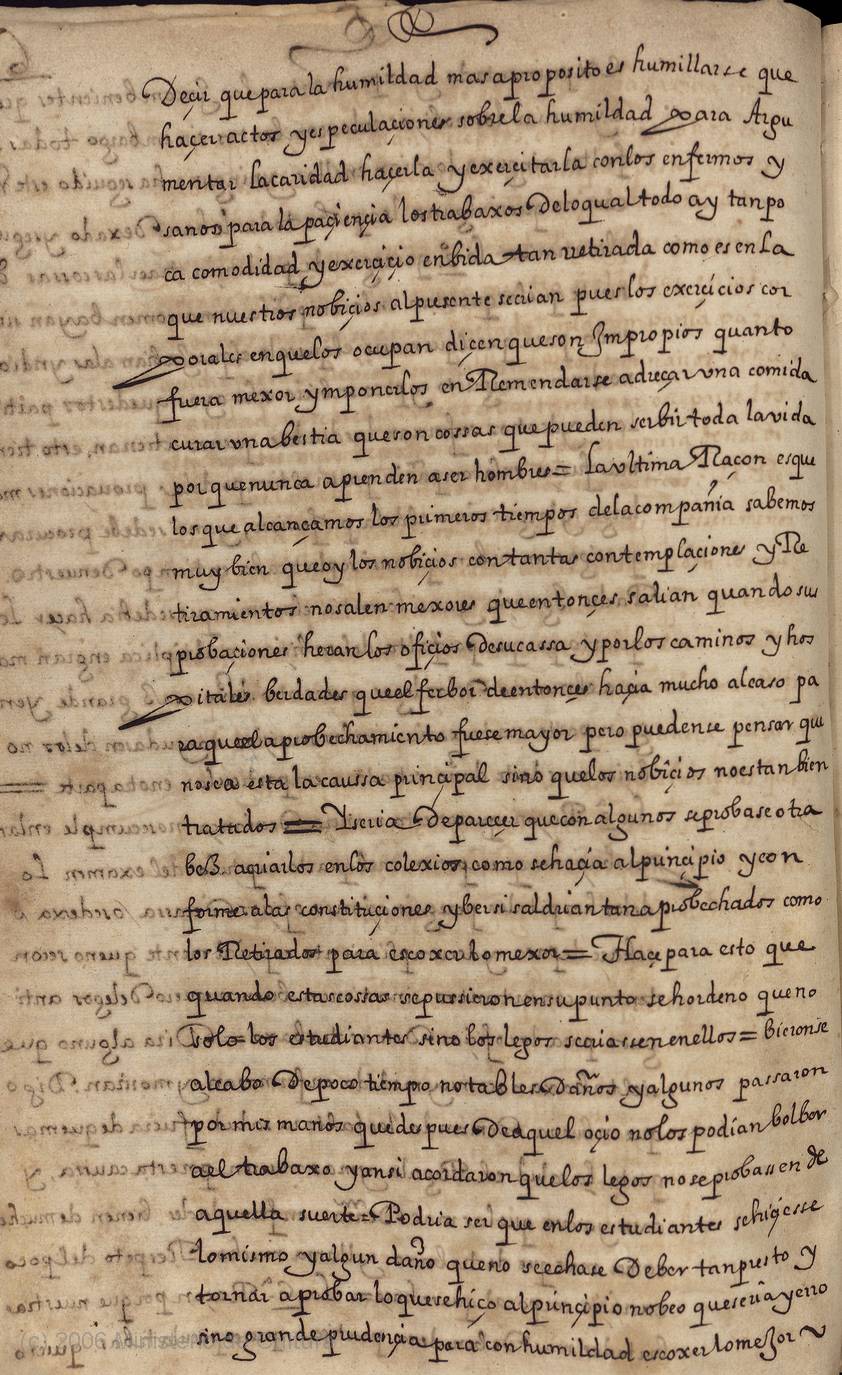 Deçir que para la humildad mas a proposito es humillarse que
haçer actos y especulaçiones sobre la humildad para Argu
mentar la caridad haçerla y exerçitarla con los enfermos y
sanos para la paçiençia los trabaxos De lo qual todo ay tan po
ca comodidad y exerçiçio en bida tan retirada como es en La
que nuestros nobiçios al presente se crian pues los exerçicios cor
porales en que los ocupan diçen que son Jmpropios quanto
fuera mexor ymponerlos en Remendarse adreçar vna comida
curar vna bestia que son cossas que pueden serbir toda la vida
por que nunca aprenden a ser hombres = La vltima Raçon es que
los que alcançamos los primeros tiempos de la compañia sabemos
muy bien que oy los nobiçios con tantas contemplaçiones y Re
tiramientos no salen mexores que entonçes salian quando sus
probaçiones heran los ofiçios De su cassa y por los caminos y hos
pitales berdad es que el ferbor de entonçes haçia mucho al caso pa
ra que el aprobechamiento fuese mayor pero puedense pensar que
no sea esta la caussa prinçipal sino que los nobiçios no estan bien
tratados = Y seria De pareçer que con algunos se probase otra
beB a criarlos en los colexios como se haçia al prinçipio y con
forme a las constituçiones y ber si saldrian tan aprobechados como
los Retirados para escoxer lo mexor = Haçe para esto que
quando estas cossas se pussieron en su punto se hordeno que no
solo los estudiantes sino los legos se criassen en ellos = bieronse
al cabo De poco tiempo notables Daños y algunos passaron
por mis manos que despues De aquel oçio no los podian bolber
a el trabaxo y ansi acordaron que los legos no se probassen de
aquella suerte = Podria ser que en los estudiantes se hiçiesse
lo mismo y algun daño que no se echase De ber tan presto y
tornar a probar lo que se hiço al prinçipio no beo que seria yerro
sino grande prudençia para con humildad escoxer lo meJor
(c) 2006